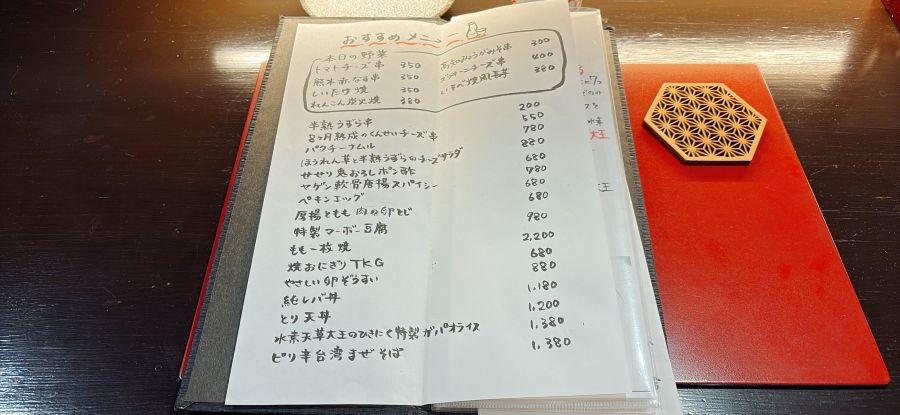 おすすめメニュー
本日の野菜
トマトチーズ串 350
熊本赤なす串 350
しいたけ焼 350
れんこん炭火焼 380
高知みょうがみそ串 300
ズッキーニチーズ串 400
380
半熟うずら串 200
8ヶ月熟成のくんせいチーズ串 550
パクチーナムル 780
ほうれん草と半熟うずらのチーズサラダ 880
せせり鬼おろしポン酢 680
ヤゲン軟骨唐揚スパイシー 780
ペキンエッグ 680
厚揚ともも肉の卵とじ 680
特製マーボー豆腐 980
もも一枚焼 2,200
焼おにぎりTKG 680
やさしい卵ぞうすい 880
純レバ丼 1,180
とり天丼 1,200
水素天草大王のひきにく特製ガパオライス 1,380
ピリ辛台湾まぜそば 1,380
水素
大王
王